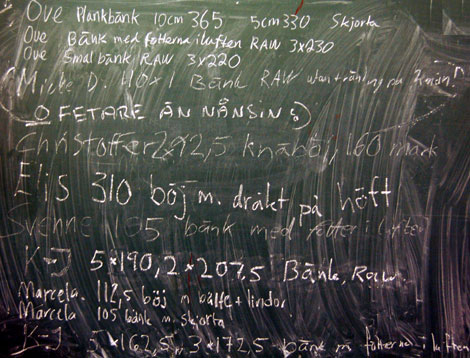 Ove Plankbänk 10cm 365 5cm 330 Skjorta
Ove Bänk med fötterna i luften RAW 3x230
Ove Smal bänk RAW 3x220
(Micke D. 110x1 Bänk RAW utan träning på
O FETARE ÄN NÄNSIN!)
Christoffer 2x212,5 knäböj, 160 mark
Elis 310 böj m. dräkt på höft
Svenne 195 bänk med fötter i
K-J 5x190, 2x207,5 Bänk, Raw
Marcela 112,5 böj m bälte + lindor
Marcela 105 bänk m. skjorta
K-J 5x162,5, 3x172,5 bänk m fötterna i luften